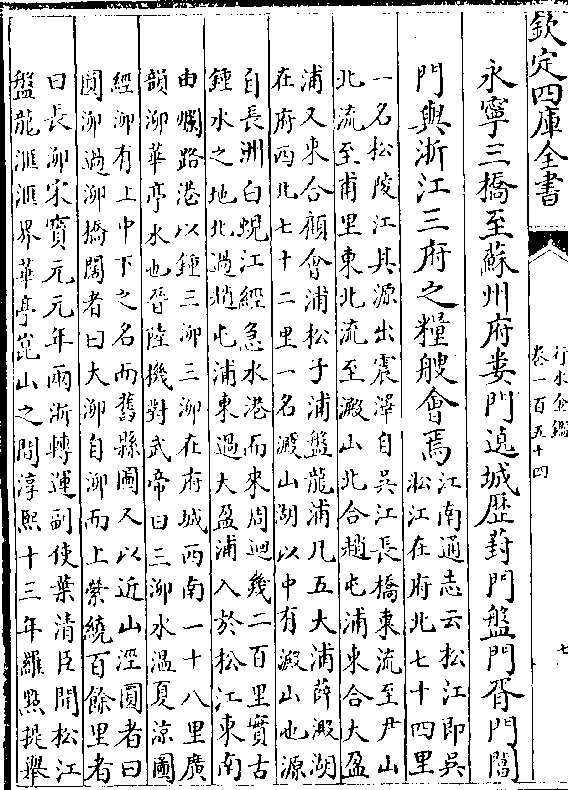 欽定四庫全書
行水金鑑
卷一百五十四
七
永寧三橋至蘇州府婁門遶城歷葑門盤門胥門閶
門與浙江三府之糧艘會焉
江南通志云松江即吳
淞江在府北七十四里
一名松陵江其源出震澤自吳江長橋東流至尹山
北流至甫里東北流至澱山北合趙屯浦東合大盈
浦又東合顧會浦松子浦盤龍浦凡五大浦薛澱湖
在府西北七十二里一名澱山湖以中有澱山也源
自長洲白蜆江經急水港而來周迴幾二百里實古
鍾水之地北過趙屯浦東過大盈浦入於松江東南
由爛路港以鍾三泖三泖在府城西南一十八里廣
韻泖華亭水也晉陸機對武帝曰三泖水温夏涼圖
經泖有上中下之名而舊縣圖又以近山涇圓者曰
圓泖過泖橋闊者曰大泖自泖而上縈繞百餘里者
曰長泖宋寶元元年兩浙轉運副使葉清臣開松江
盤龍滙滙界華亭崑山之間淳熙十三年羅㸃提舉